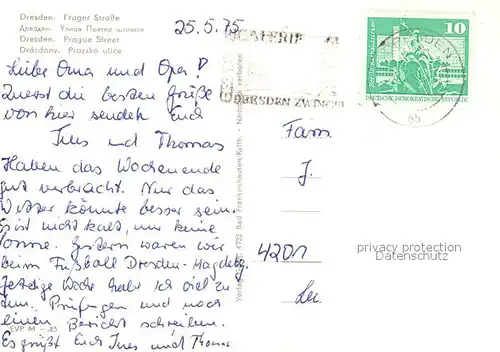 Dresden. Prager Straße
Дрезден. Улица Прагер штрассе
Dresden. Prague Street
Drážďany. Pražská ulice
25.5.75
GALERIE
DRESDEN ZWINGER
10
DEUTSCHE DEMOKRATISCHE REPUBLIK
Liebe Oma und Opa!
Zuerst die besten Grüße
von hier senden Euch
Ines und Thomas
Haben das Wochenende
gut verbracht. Nur das
Wetter könnte besser sein.
Es ist nicht kalt, nur keine
Sonne. Gestern waren wir
beim Fußball Dresden-Magdebg.
Woche habe ich viel zu
tun. Prüfungen und noch
einen Bericht schreiben.
Es grüßt Euch Ines und Thomas
EVP M –.25
Verlag 4732 Bad Frankenhausen/Kyffh. · Nachdruck verboten
Fam.
J.
4201
Leu
privacy protection
Datenschutz